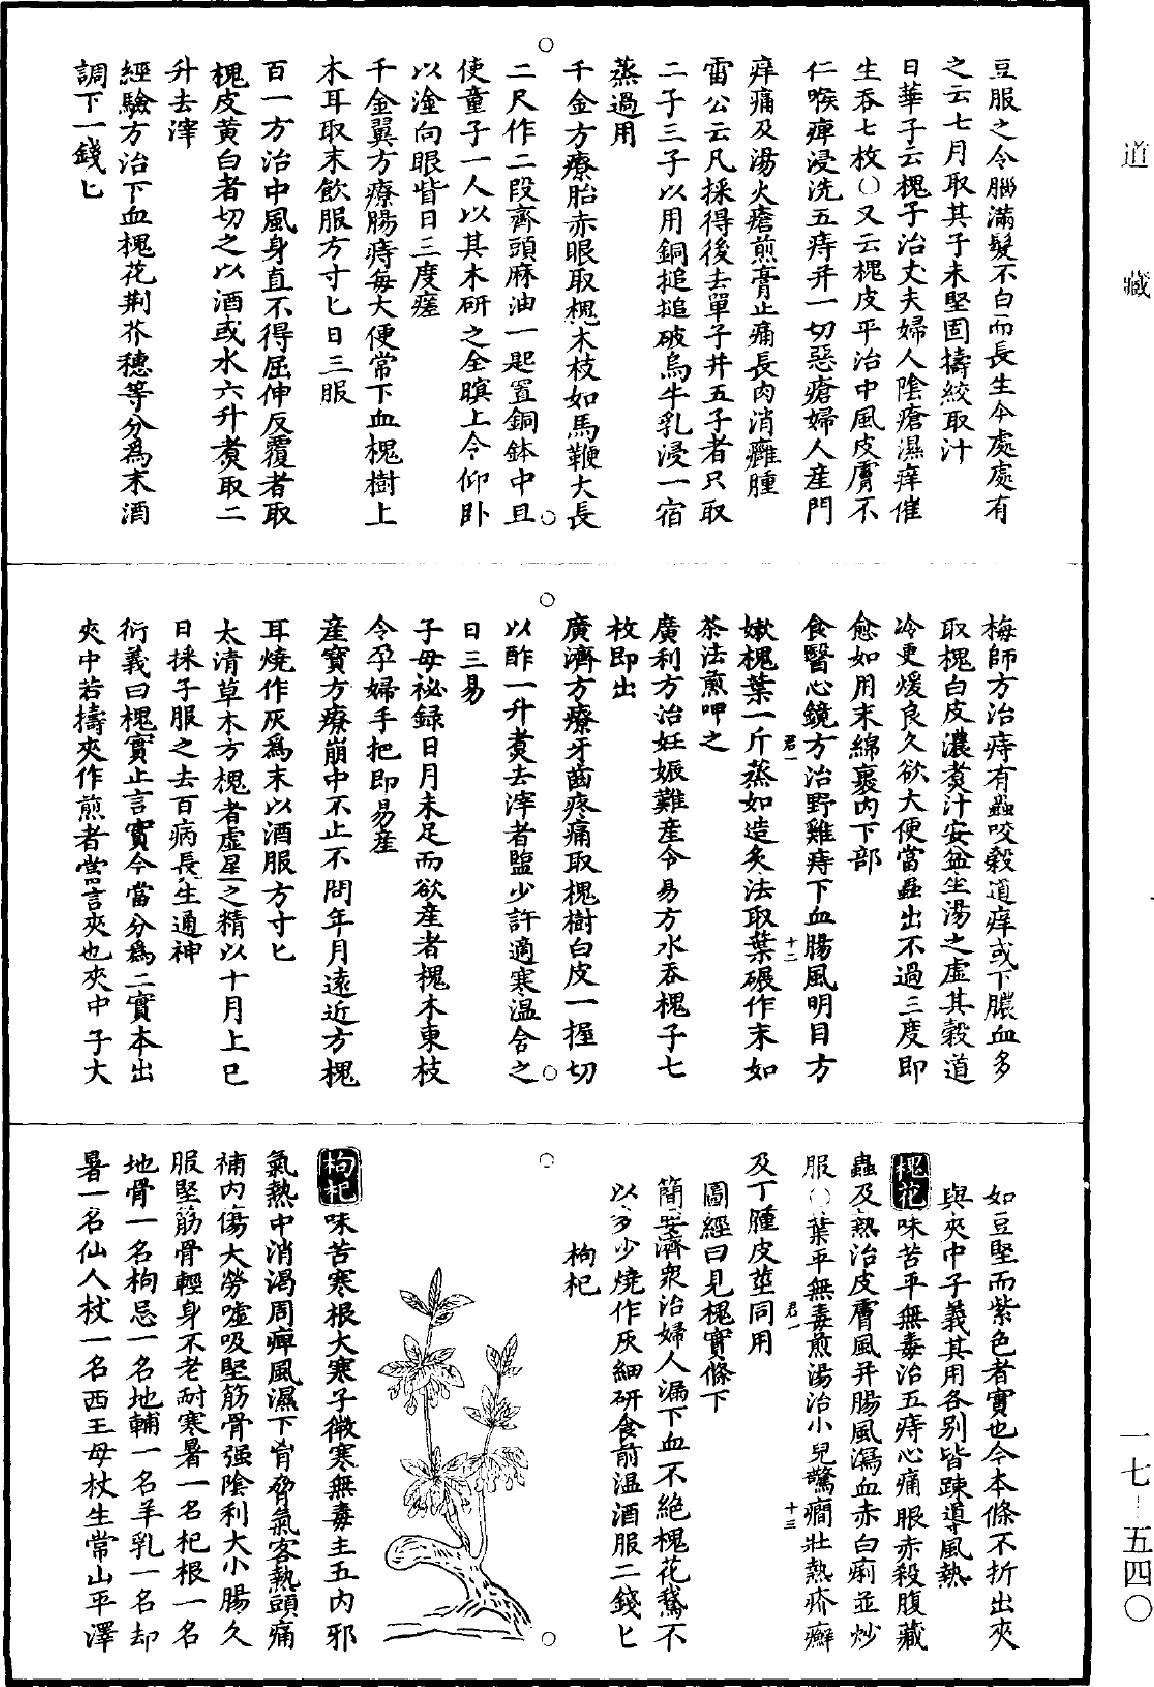 道藏
豆服之令腦滿髮不白而長生今處處有
之云七月取其子未堅固擣絞取汁
日華子云槐子治丈夫婦人陰瘡濕痒催
生吞七枚○又云槐皮平治中風皮膚不
仁喉痺浸洗五痔并一切惡瘡婦人產門
痒痛及湯火瘡煎膏止痛長肉消癰腫
雷公云凡採得後去單子并五子者只取
二子三子以用銅搥搥破烏牛乳浸一宿
蒸過用
千金方療胎赤眼取槐木枝如馬鞭大長
二尺作二段齊頭麻油一匙置銅鉢中且
使童子一人以其木研之至瞑上令仰卧
以塗向眼眥日三度瘥
千金翼方療腸痔每大便常下血槐樹上
木耳取末飲服方寸匕日三服
百一方治中風身直不得屈伸反覆者取
槐皮黃白者切之以酒或水六升煮取二
升去滓
經驗方治下血槐花荆芥穗等分為末酒
調下一錢匕
梅師方治痔有蟲咬穀道痒或下膿血多
取槐白皮濃煮汁安盆坐湯之虛其穀道
冷更煖良久欲大便當蟲出不過三度即
愈如用末綿裹內下部
食醫心鏡方治野雞痔下血腸風明目方
君一 十二
嫩槐葉一斤蒸如造炙法取葉碾作末如
茶法煎呷之
廣利方治妊娠難產令易方水吞槐子七
枚即出
廣濟方療牙齒疼痛取槐樹白皮一握切
以酢一升煮去滓著鹽少許適寒溫含之
日三易
子母祕録日月未足而欲產者槐木東枝
令孕婦手把即易產
產寶方療崩中不止不問年月遠近方槐
耳燒作灰為末以酒服方寸匕
太清草木方槐者虛星之精以十月上巳
日採子服之去百病長生通神
衍義曰槐實止言實今當分為二實本出
夾中若擣夾作煎者當言夾也夾中子大
如豆堅而紫色者實也今本條不折出夾
與夾中子義其用各別皆踈導風熱
槐花味苦平無毒治五痔心痛眼赤殺腹藏
蟲及熱治皮膚風并腸風瀉血赤白痢並炒
服○葉平無毒煎湯治小兒驚癎壯熱疥癬
君一 十三
及丁腫皮莖同用
圖經曰見槐實條下
簡要濟衆治婦人漏下血不絕槐花鵝不
以多少燒作灰細研食前溫酒服二錢匕
枸杞
枸杞味苦寒根大寒子微寒無毒主五內邪
氣熱中消渴周痺風濕下胷脅氣客熱頭痛
補內傷大勞噓吸堅筋骨强陰利大小腸久
服堅筋骨輕身不老耐寒暑一名杞根一名
地骨一名枸忌一名地輔一名羊乳一名却
暑一名仙人杖一名西王母杖生常山平澤
一七-五四〇